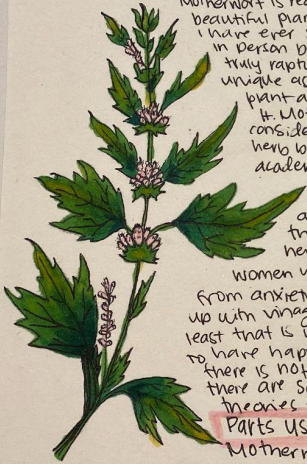 Motherwort is rea
beautiful plan
I have ever s
in person b
truly rapt
unique as
plant a
it. Mot
conside
herb b
acade
a
th
he
women u
from anxiet
up with vinag
least that is
to have happ
there is not
there are s
theories
Parts us
Motherw